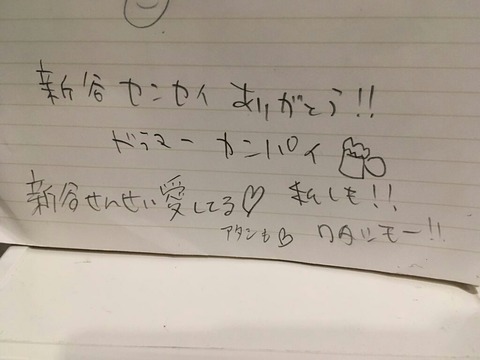 新谷センセイ ありがとう!!
ドラマー カンパイ
新谷せんせい愛してる♡ 私しも!!
アタシも♡ ワタシモー!!